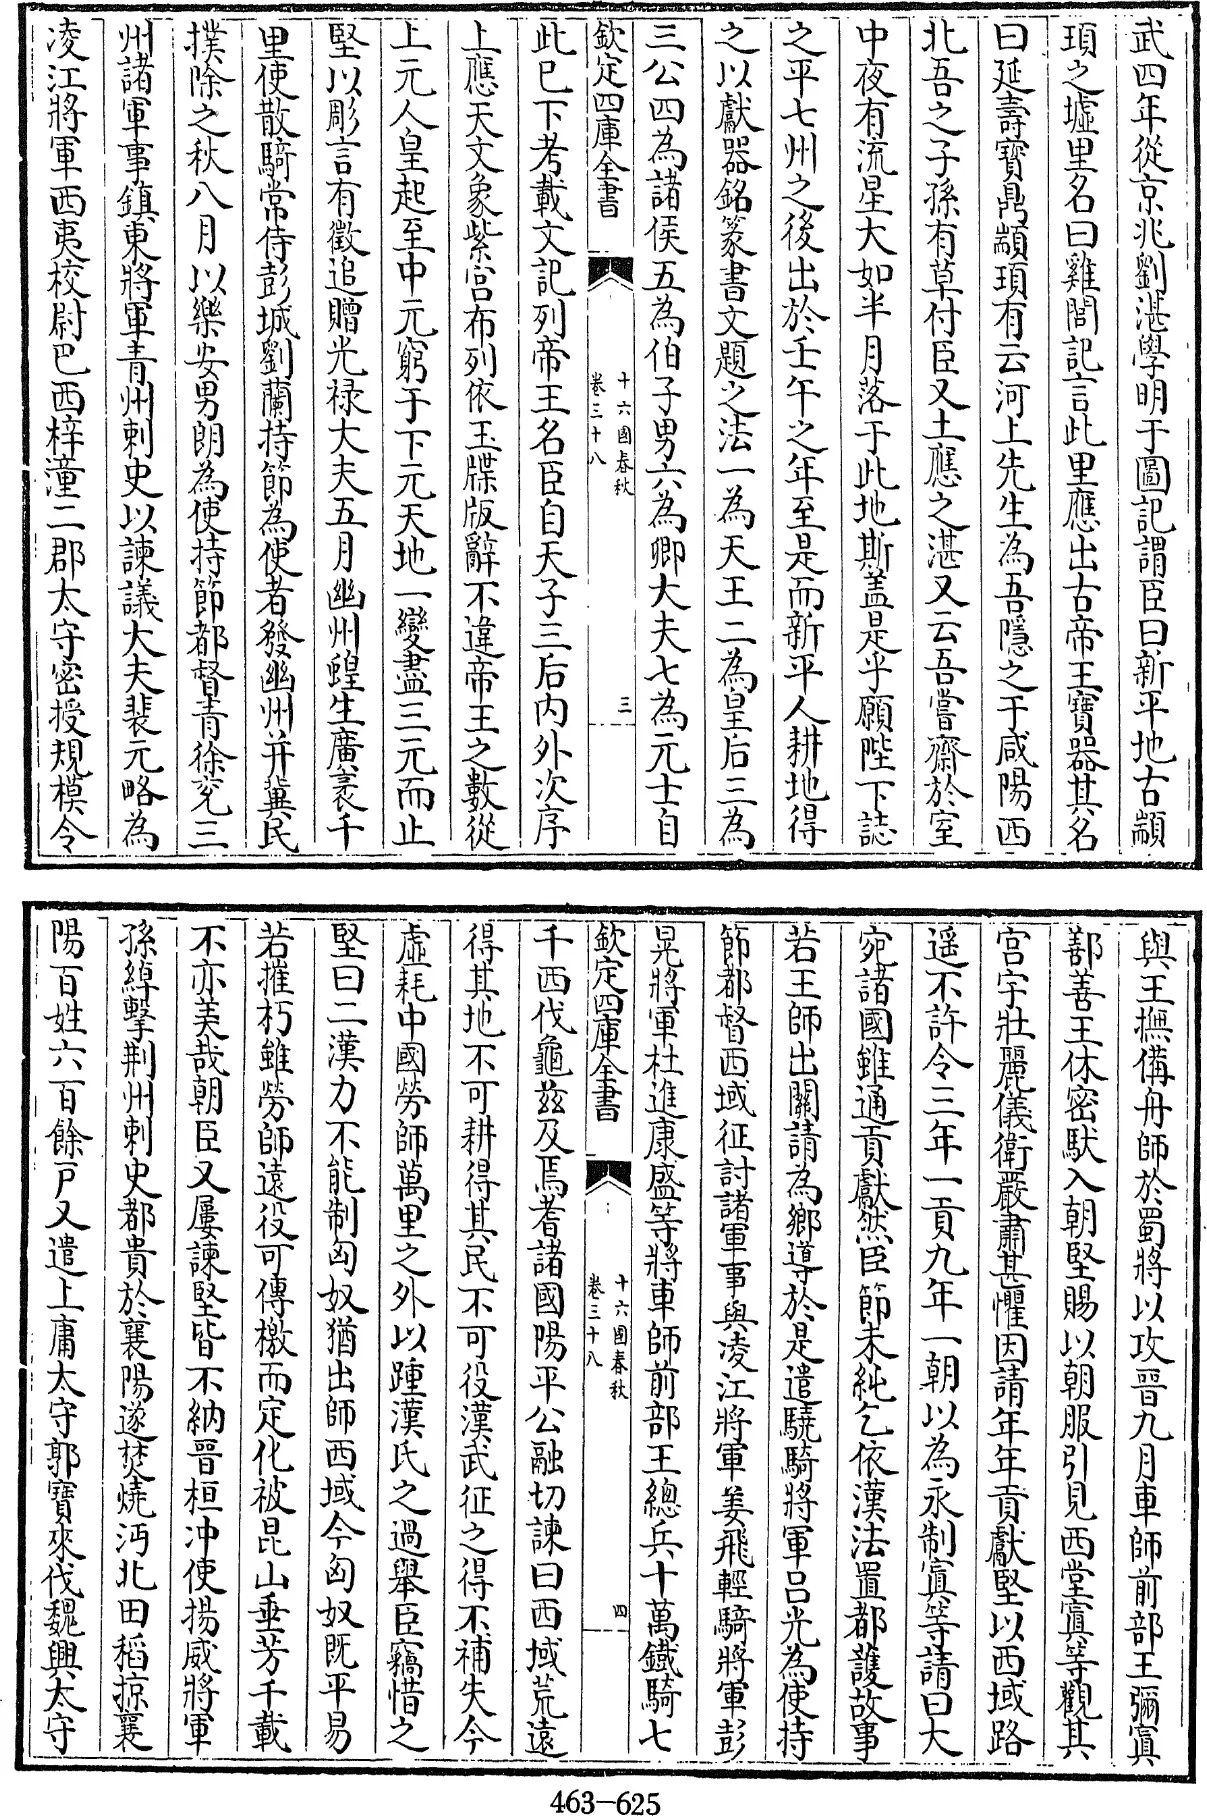 武四年從京兆劉湛學明于圖記謂臣曰新平地古顓
頊之墟里名曰雞閭記言此里應出古帝王寶器其名
曰延壽寶鼎顓頊有云河上先生為吾隱之于咸陽西
北吾之子孫有草付臣又土應之湛又云吾嘗齋於室
中夜有流星大如半月落于此地斯盖是乎願陛下誌
之平七州之後出於壬午之年至是而新平人耕地得
之以獻器銘篆書文題之法一為天王二為皇后三為
三公四為諸侯五為伯子男六為卿大夫七為元士自
欽定四庫全書
十六國春秋
卷三十八
三
此已下考載文記列帝王名臣自天子三后内外次序
上應天文象紫宫布列依玉牒版辭不違帝王之數從
上元人皇起至中元窮于下元天地一變盡三元而止
堅以彫言有徵追贈光禄大夫五月幽州蝗生廣袤千
里使散騎常侍彭城劉蘭持節為使者發幽州并冀民
撲除之秋八月以樂安男朗為使持節都督青徐兖三
州諸軍事鎮東將軍青州刺史以諫議大夫裴元略為
凌江將軍西夷校尉巴西梓潼二郡太守密授規模令
與王撫備舟師於蜀將以攻晉九月車師前部王彌窴
鄯善王休密馱入朝堅賜以朝服引見西堂窴等觀其
宫宇壯麗儀衛嚴肅甚懼因請年年貢獻堅以西域路
遥不許令三年一貢九年一朝以為永制窴等請曰大
宛諸國雖通貢獻然臣節未純乞依漢法置都護故事
若王師出關請為鄉導於是遣驍騎將軍吕光為使持
節都督西域征討諸軍事與凌江將軍姜飛輕騎將軍彭
晃將軍杜進康盛等將車師前部王總兵十萬鐵騎七
欽定四庫全書
十六國春秋
卷三十八
四
千西伐龜兹及焉耆諸國陽平公融切諫曰西域荒遠
得其地不可耕得其民不可役漢武征之得不補失今
虚耗中國勞師萬里之外以踵漢氏之過舉臣竊惜之
堅曰二漢力不能制匈奴猶出師西域今匈奴既平易
若摧朽雖勞師遠役可傳檄而定化被昆山垂芳千載
不亦美哉朝臣又屢諫堅皆不納晉桓冲使揚威將軍
孫綽擊荆州刺史都貴於襄陽遂焚燒沔北田稻掠襄
陽百姓六百餘戸又遣上庸太守郭寶來伐魏興太守
463-625